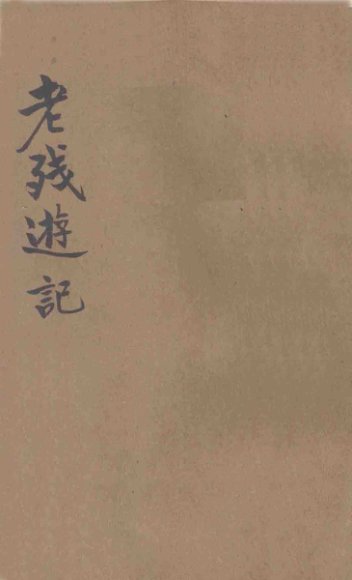 老残遊記